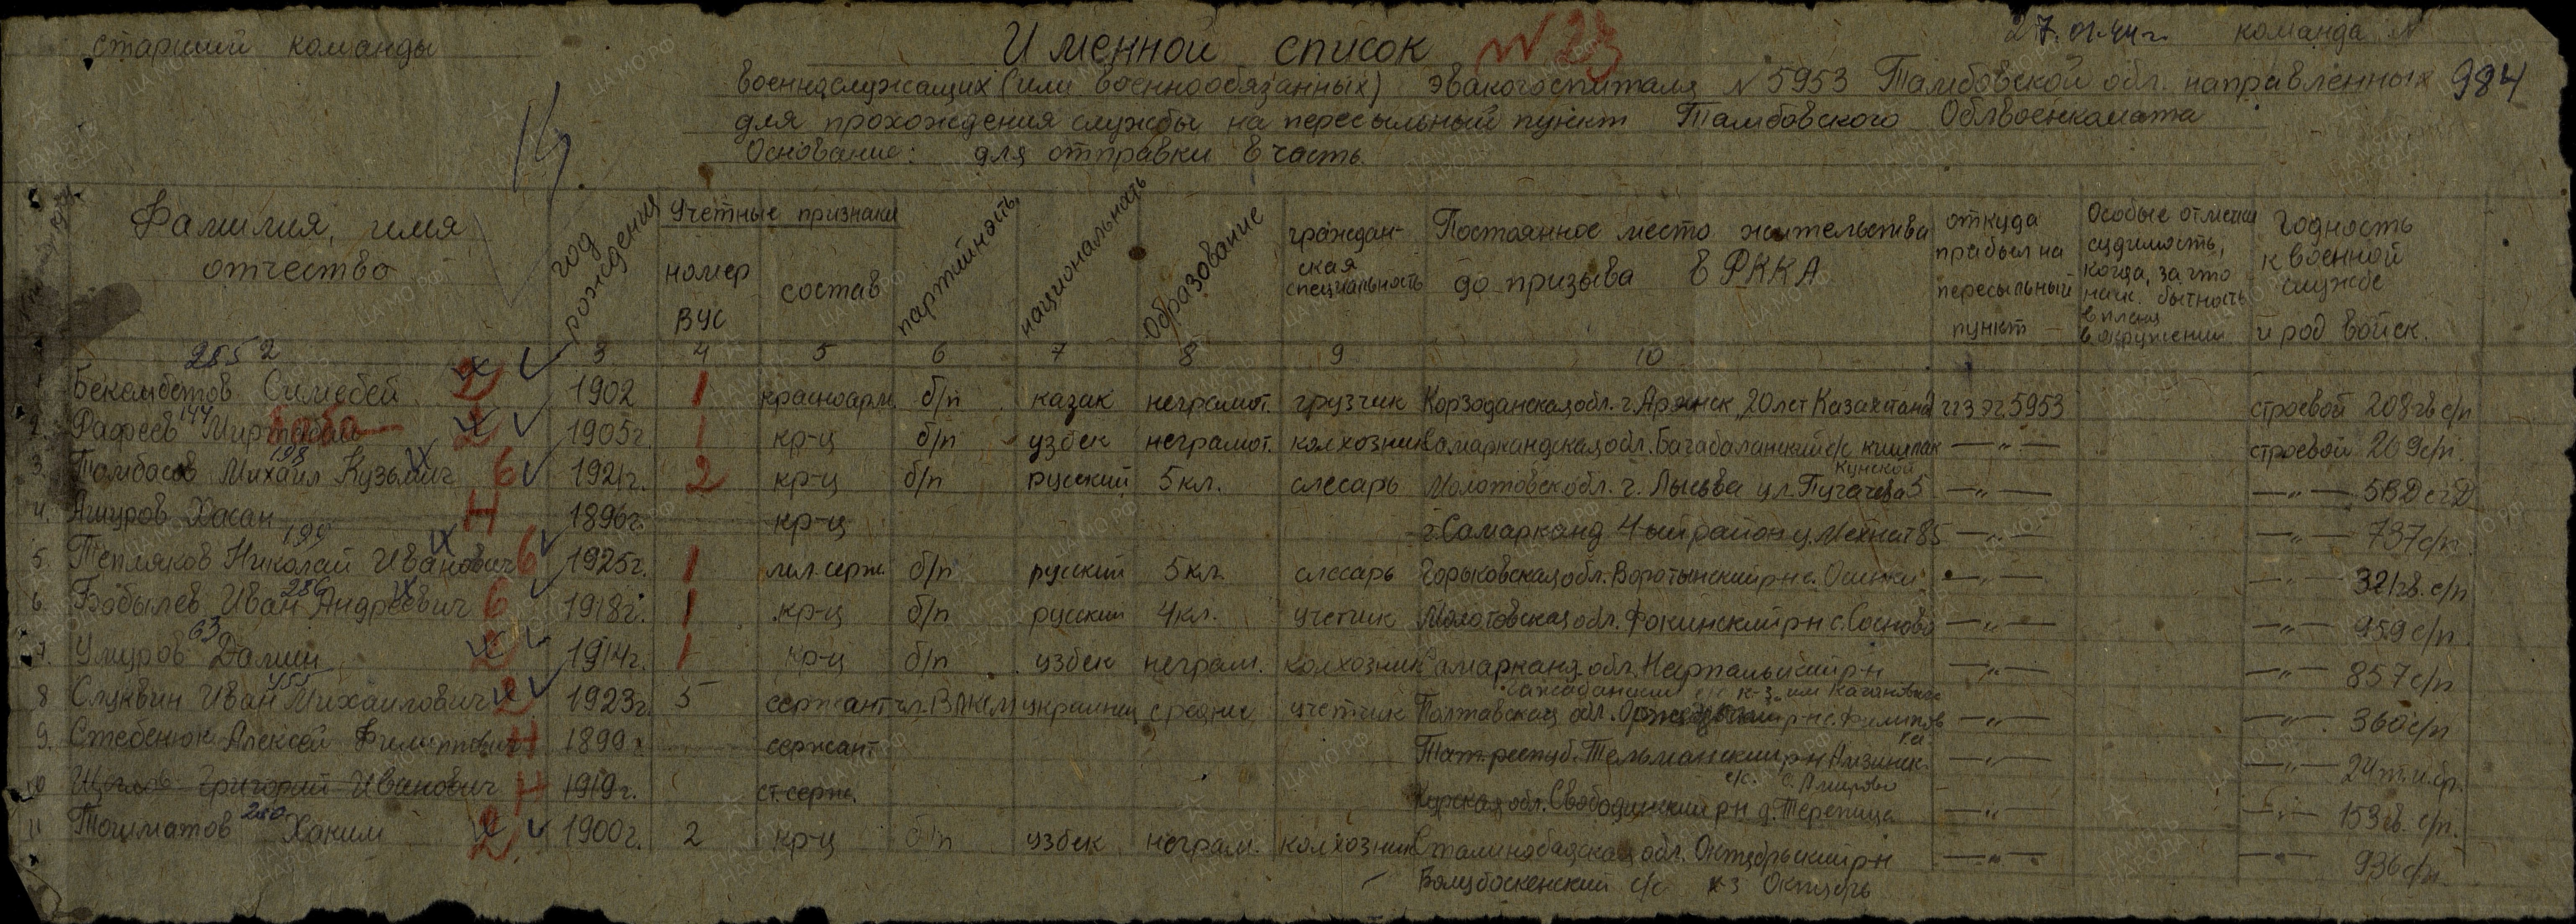 старший команды
Именной список N 23
27.01.44г. команда N 984
военнослужащих (или военнообязанных) эвакогоспиталя N 5953 Тамбовской обл. направленных
для прохождения службы на пересыльный пункт Тамбовского Облвоенкомата
Основание: для отправки в часть.
14.
Фамилия, имя отчество
год рождения
Учетные признаки
номер ВУС
состав
партийность
национальность
Образование
граждан-
ская
специальность
Постоянное место жительства
до призыва в РККА
откуда
прибыл на
пересыльный
пункт
Особые отметки
судимость,
когда, за что
наик. бытность
в плену
в окружении
Годность
к военной
службе
и род войск.
3 4 5 6 7 8 9 10
2852
1 Бекембетов Симебей 2 1902 1 красноарм. б/п казак неграмот. грузчик обл. г. 20 лет Казахстана ЭГ 5953 строевой 208 гв с/п
144
2. Рафеев 2 1905г. 1 кр-ц б/п узбек неграмот. колхозник Самаркандская обл. с/с кишлак —"— строевой 269 с/п.
198
3. Томбасов Михаил Кузьмич 6 1921г. 2 кр-ц б/п русский 5 кл. слесарь Молотовск обл. г. Лысьва ул. Пугачева 5 —"— —"—
4. Ашуров Хасан Н 1896г. кр-ц г. Самарканд 4-ый район у. Мехнат 85 —"— —"— 737 с/п
199
5 Тепляков Николай Иванович 6 1925г. 1 мл. серж. б/п русский 5 кл. слесарь Горьковская обл. Воротынский р-н с. Осинки —"— —"— 32 гв. с/п
286
6. Бобылев Иван Андреевич 6 1918г. 1 кр-ц б/п русский 4 кл. учетчик Молотовская обл. Фокинский р-н с. Сосново —"— —"— 959 с/п
63
7. Умуров Далин 2 1914г. 1 кр-ц б/п узбек неграм. колхозник Самарканд. обл. Нарпайский р-н —"— —"— 857 с/п
с/с к-з. им Кагановича
455
8 Слуквин Иван Михайлович 2 1923г. 5 сержант чл. ВЛКСМ украинец средние учетчик Полтавская обл. р-н с. —"— —"— 360 с/п
9. Стебенюк Алексей Филиппович Н 1899г. сержант Тат. респуб. Тельманский р-н —"— —"—
с/с. с. Амирово
10 Щеглов Григорий Иванович Н 1919г. ст. серж. Курская обл. Свободинский р-н д. —"— —"— 153 гв. с/п.
280
11 Тошматов Хаким 2 1900г. 2 кр-ц б/п узбек неграм. колхозник Сталинабадская обл. Октябрьский р-н —"— —"— 936 с/п
с/с к-з Октябрь